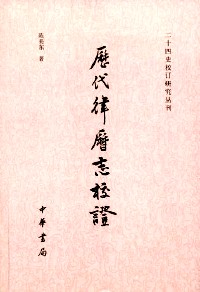 二十四史校订研究丛刊
陈美东 著
歷代律曆志校證
中華書局